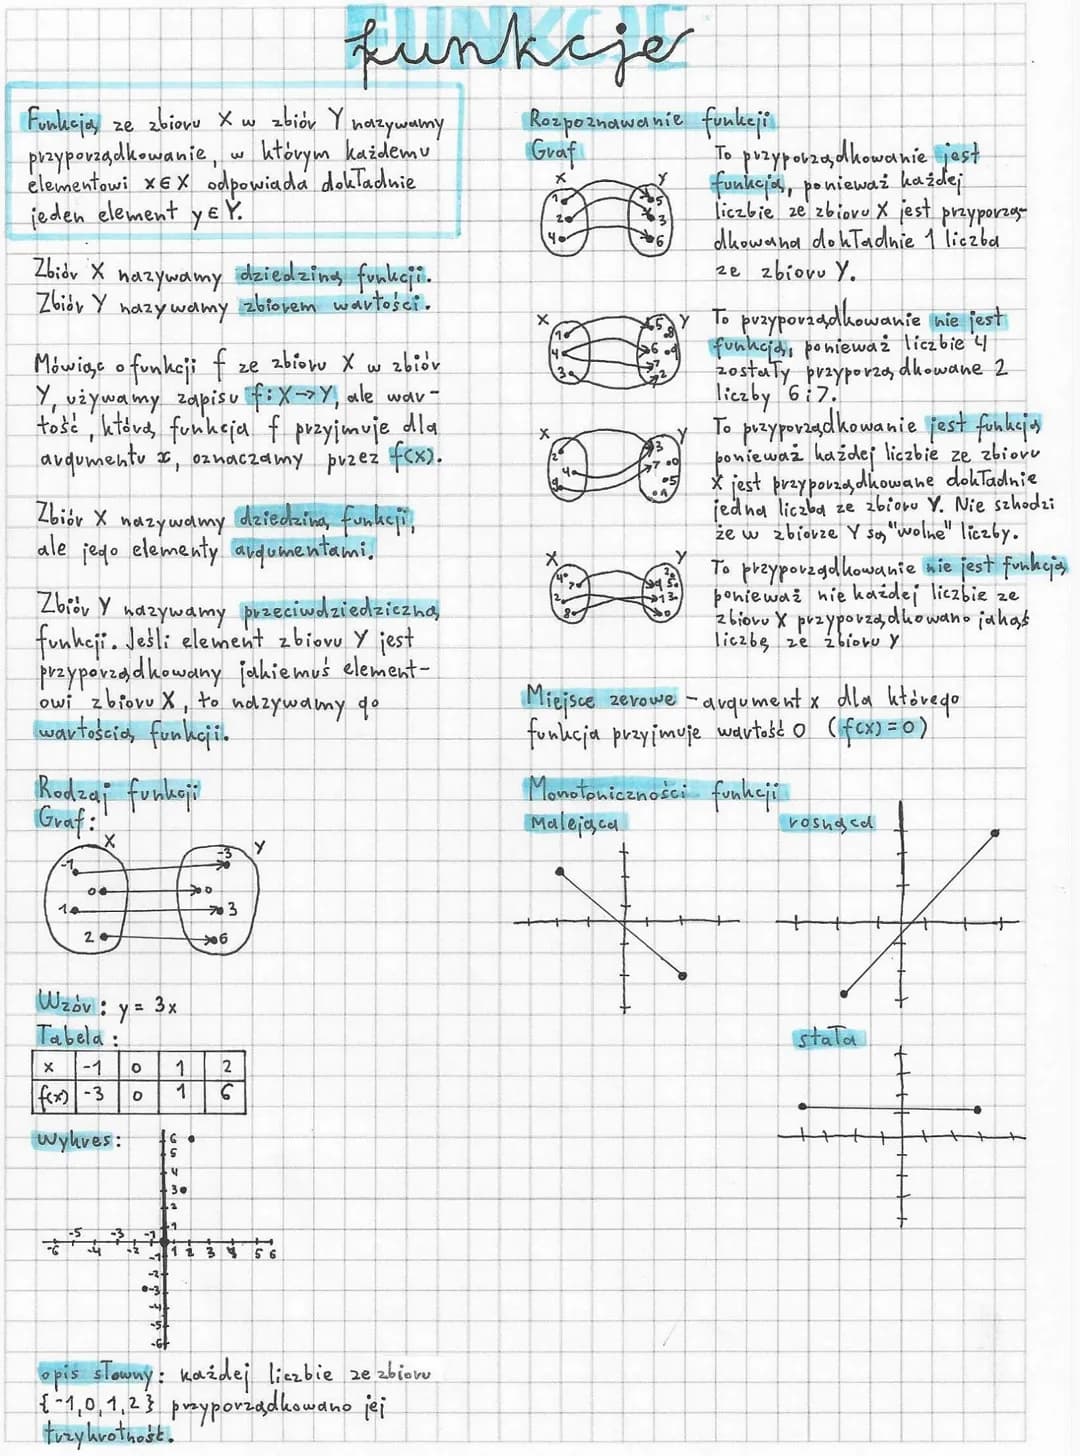 FUNKCJE
funkcje
Funkcją ze zbioru X w zbiór Y nazywamy
przyporządkowanie, w którym każdemu
elementowi x∈X odpowiada dokładnie
jeden element y∈Y.
Zbiór X nazywamy dziedziną funkcji.
Zbiór Y nazywamy zbiorem wartości.
Mówiąc o funkcji f ze zbioru X w zbiór
Y, używamy zapisu f: X→Y, ale war-
tość, którą funkcja f przyjmuje dla
argumentu x, oznaczamy przez f(x).
Zbiór X nazywamy dziedziną funkcji,
ale jego elementy argumentami.
Zbiór Y nazywamy przeciwdziedziczną
funkcji. Jeśli element zbioru Y jest
przyporządkowany jakiemuś element-
owi zbioru X, to nazywamy go
wartością funkcji.
Rodzaj funkcji
Graf:
X Y
-1 -3
0 0
1 3
2 6
Wzór: y = 3x
Tabela:
x -1 0 1 2
f(x) -3 0 1 6
Wykres:
6
5
4
3
2
1
-6 -5 -4 -3 -2 -1 1 2 3 4 5 6
-1
-2
-3
-4
-5
-6
opis słowny: każdej liczbie ze zbioru
{-1,0,1,2} przyporządkowano jej
trzykrotność.
Rozpoznawanie funkcji
Graf
X Y
1 5
2 3
4 6
To przyporządkowanie jest
funkcją, ponieważ każdej
liczbie ze zbioru X jest przyporzą-
dkowana dokładnie 1 liczba
ze zbioru Y.
X Y
1 5 8
4 6 9
3 7
2
To przyporządkowanie nie jest
funkcją, ponieważ liczbie 4
zostały przyporządkowane 2
liczby 6 i 7.
X Y
2 3
4 7 0
9 5
1
To przyporządkowanie jest funkcją
ponieważ każdej liczbie ze zbioru
X jest przyporządkowane dokładnie
jedna liczba ze zbioru Y. Nie szkodzi
że w zbiorze Y są "wolne" liczby.
X Y
4 2
7 9 5
2 1 3
8 0
To przyporządkowanie nie jest funkcją
ponieważ nie każdej liczbie ze
zbioru X przyporządkowano jakąś
liczbę ze zbioru Y
Miejsce zerowe - argument x dla którego
funkcja przyjmuje wartość 0 (f(x)=0)
Monotoniczności funkcji
Malejąca rosnąca
stała